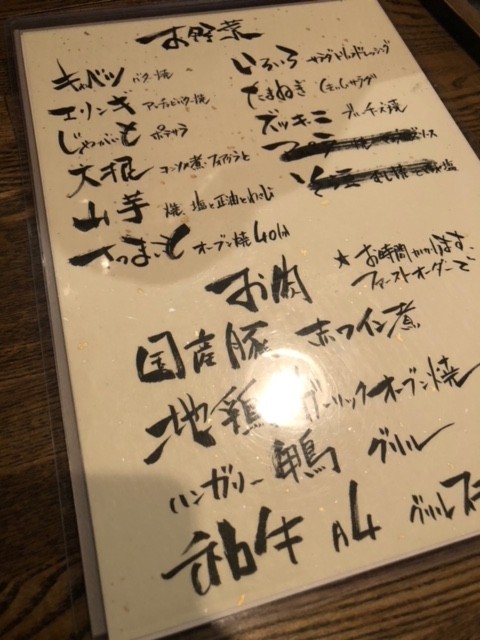 お野菜
キャベツ バター焼
エリンギ アンチョビバター焼
じゃがいも ポテサラ
大根 コンソメ煮
山芋 焼 塩と正油とわさび
さつまいも オーブン焼 40分
いろいろ サラダ ドレッシング
たまねぎ
ズッキーニ ブルーチーズ焼
★お時間かかります。
ファーストオーダーで
お肉
国産豚 赤ワイン煮
地鶏 ガーリックオーブン焼
ハンガリー鴨 グリル
和牛 A4 グリル